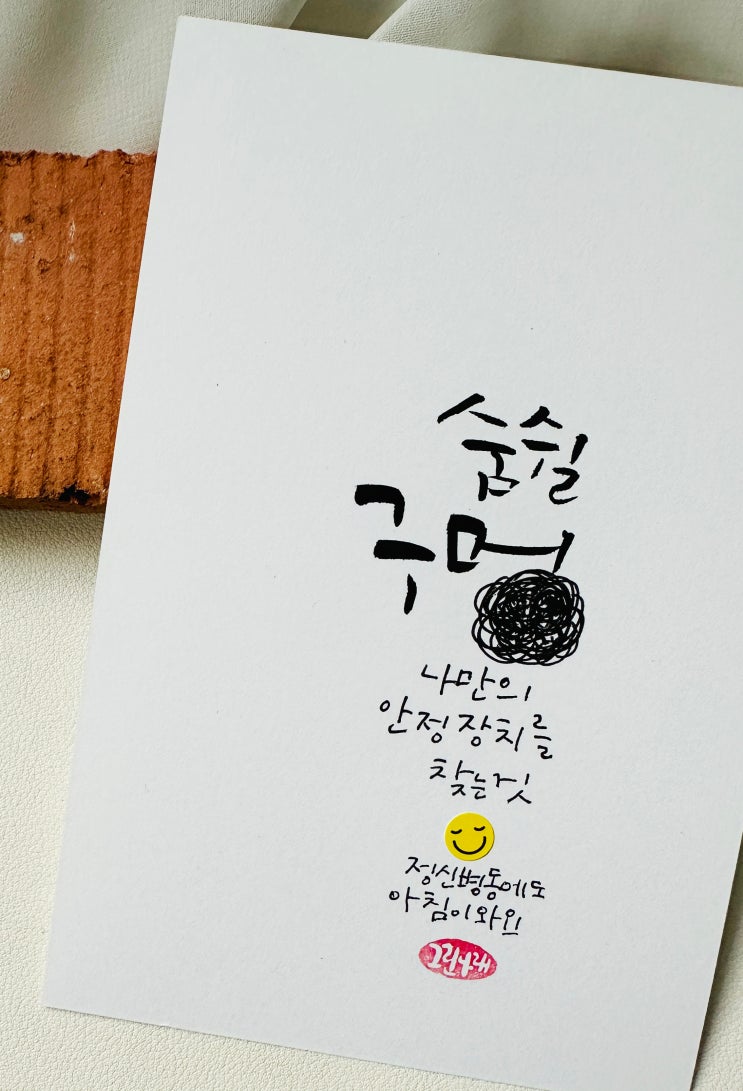 숨쉴
구멍
나만의
안정 장치를
찾는 것
정신병동에도
아침이 와요
그린나래